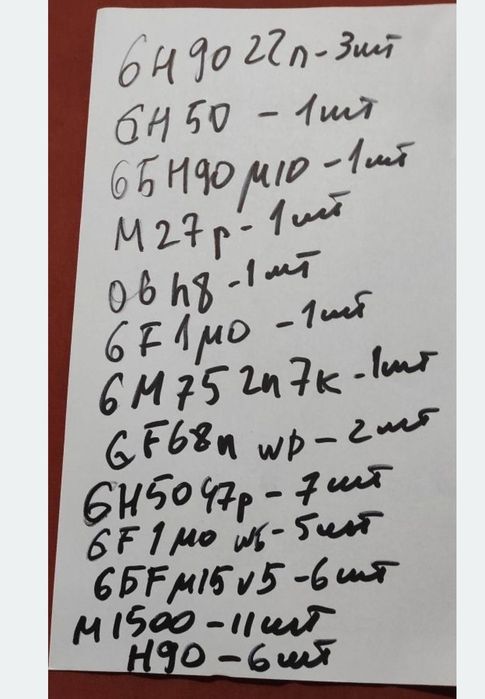 6Н90 22п - 3шт
6Н50 - 1шт
6БН90 м10 - 1шт
М27р - 1шт
06h8 - 1шт
6F1μ0 - 1шт
6М75 2п7к - 1шт
6F68п wb - 2шт
6Н50 47р - 7шт
6F1μ0 wб - 5шт
6БFм15 v5 - 6шт
М1500 - 11шт
Н90 - 6шт